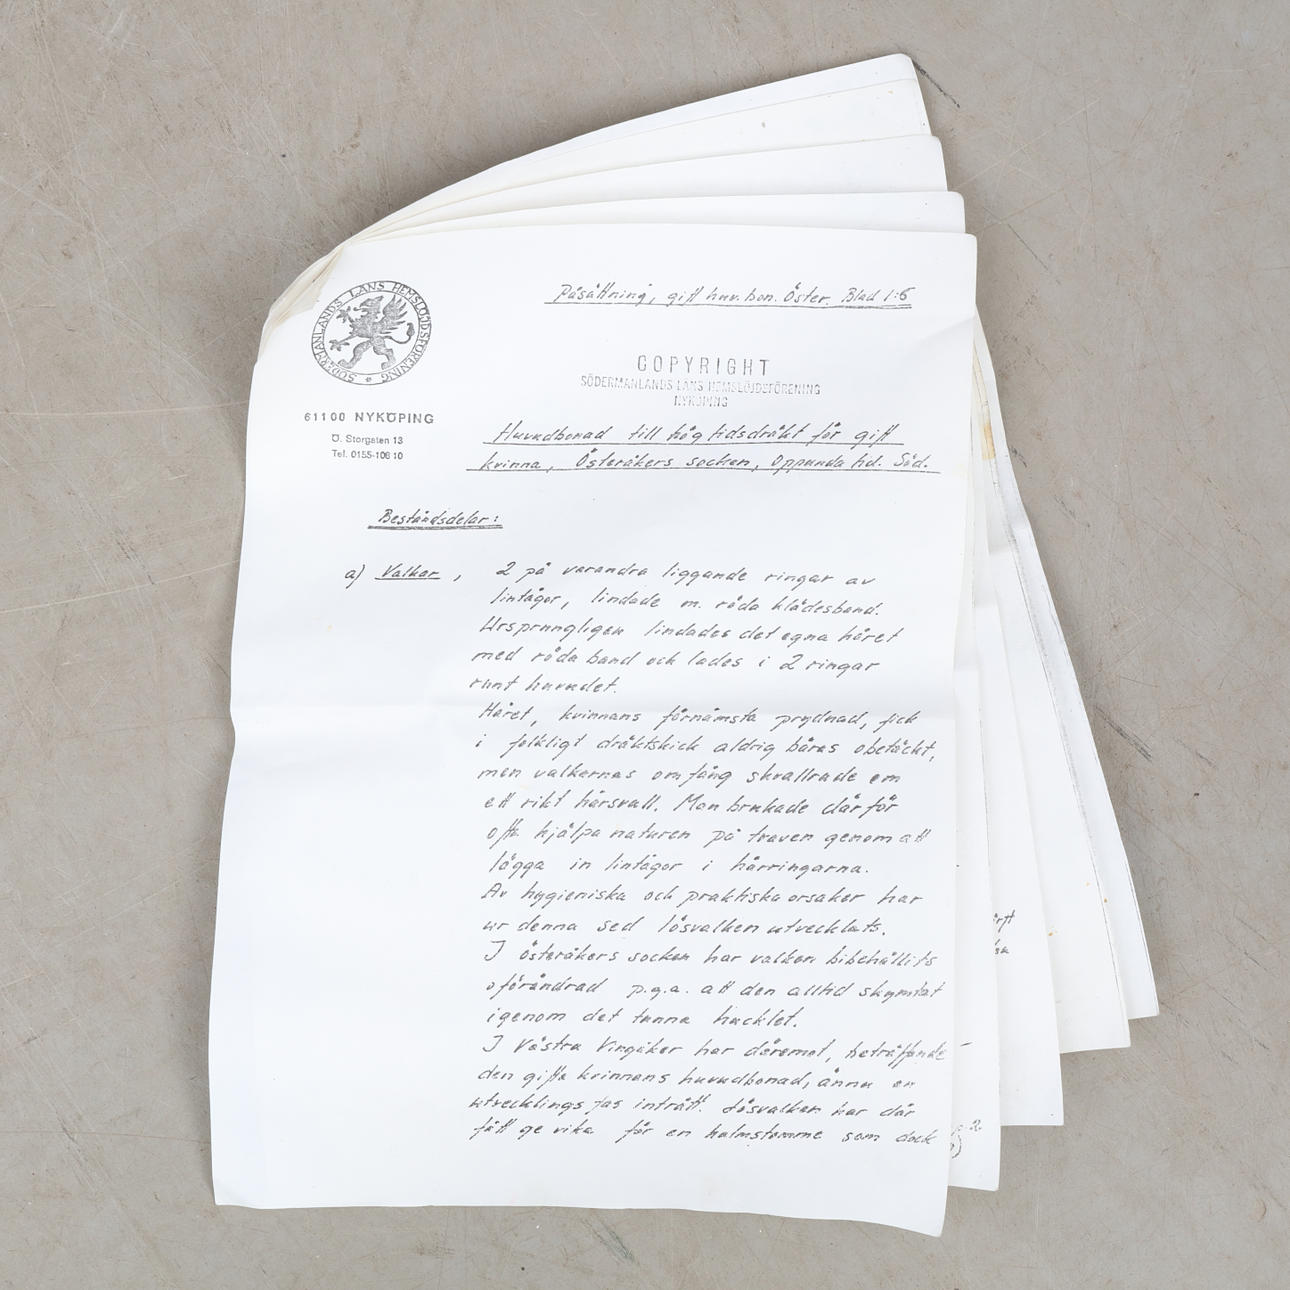 SÖDERMANLANDS LÄNS HEMSLÖJDSFÖRENING
61100 NYKÖPING
Ö. Storgatan 13
Tel. 0155-106 10
Påsättning, gift huv.bon. Öster. Blad 1:6
COPYRIGHT
SÖDERMANLANDS LÄNS HEMSLÖJDSFÖRENING
NYKÖPING
Huvudbonad till högtidsdräkt för gift
kvinna, Österåkers socken, Oppunda hd. Söd.
Beståndsdelar:
a) Valkar, 2 på varandra liggande ringar av
lintågor, lindade m. röda klädesband.
Ursprungligen lindades det egna håret
med röda band och lades i 2 ringar
runt huvudet.
Håret, kvinnans förnämsta prydnad, fick
i folkligt dräktskick aldrig bäras obetäckt,
men valkarnas omfång skvallrade om
ett rikt hårsvall. Man brukade därför
ofta hjälpa naturen på traven genom att
lägga in lintågor i hårringarna.
Av hygieniska och praktiska orsaker har
ur denna sed lösvalken utvecklats.
I Österåkers socken har valken bibehållits
oförändrad p.g.a. att den alltid skymtat
igenom det tunna hucklet.
I Västra Vingåker har däremot, beträffande
den gifta kvinnans huvudbonad, ännu en
utvecklings fas inträtt. Lösvalken har där
fått ge vika för en halmstomme som dock